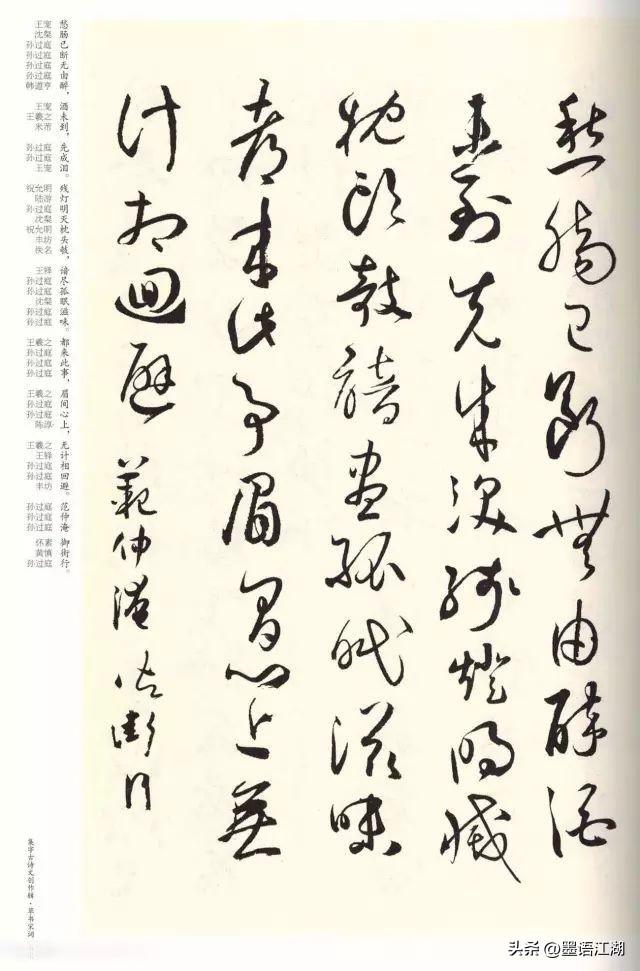 愁腸已斷無由醉酒
未到先成淚殘燈明滅
枕頭攲諳盡孤眠滋味
都来此事眉間心上無
計相迴避 範仲淹御街行
王宠 愁
沈粲 肠
孙过庭 已
孙过庭 断
孙过庭 无
孙过庭 由
韩道亨 醉，
王宠 酒
王羲之 未
米芾 到，
孙过庭 先
孙过庭 成
王宠 泪。
祝允明 残
陆游 灯
孙过庭 明
沈粲 灭
祝允明 枕
丰坊 头
佚名 攲，
王铎 谙
孙过庭 尽
孙过庭 孤
沈粲 眠
孙过庭 滋
孙过庭 味。
王羲之 都
孙过庭 来
孙过庭 此
孙过庭 事，
王羲之 眉
孙过庭 间
孙过庭 心
陈淳 上，
王羲之 无
王铎 计
孙过庭 相
孙过庭 回
丰坊 避。
孙过庭 范
孙过庭 仲
孙过庭 淹
怀素 御
黄慎 街
孙过庭 行。
集字古诗文创作辑·草书宋词
头条 @墨语江湖